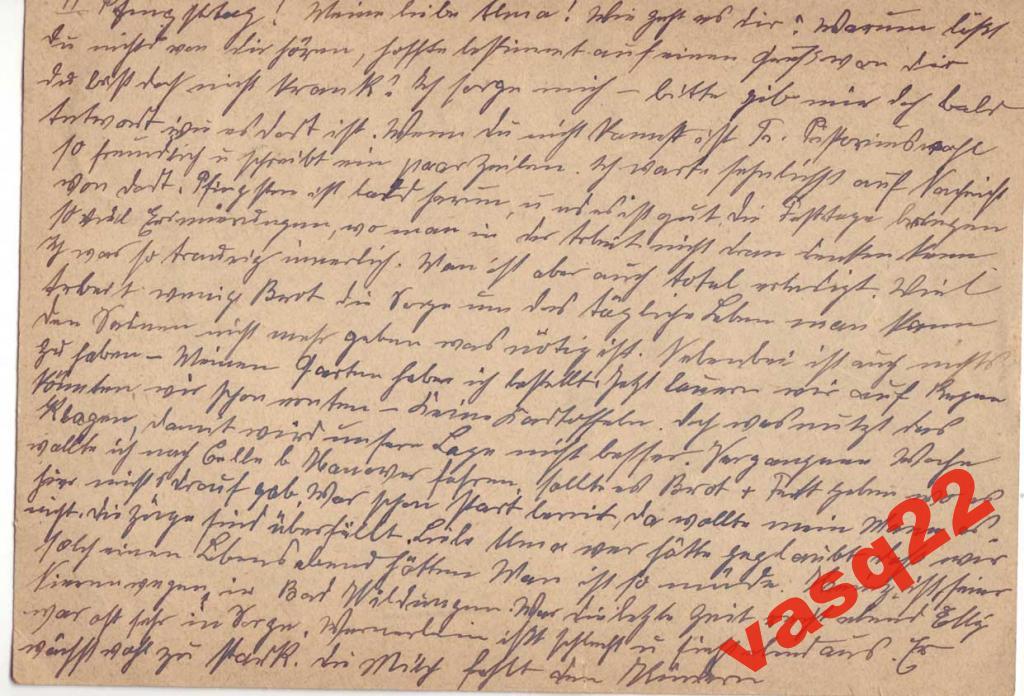 II Pfingsttag! Meine liebe Alma! Wie geht es dir? Warum läßt
du nichts von dir hören, hoffte bestimmt auf einen Gruß von dir
du bist doch nicht krank? Ich sorge mich – bitte gib mir doch bald
Antwort wie es dort ist. Wenn du nicht kannst ist Fr. Pistorius wohl
so freundlich u schreibt ein paar Zeilen. Ich warte sehnlichst auf Nachricht
von dort. Pfingsten ist bald herum, u es ist gut. Die Festtage bringen
so viel Erinnerungen, wo man in der Arbeit nicht dran denken kann
Ich war so traurig innerlich. Man ist aber auch total erledigt. Viel
Arbeit wenig Brot die Sorge um das tägliche Leben man kann
den Seinen nicht mehr geben was nötig ist. Nebenbei ist auch nichts
zu haben – Meinen Garten habe ich bestellt. Jetzt lauern wir auf Regen
könnten wir schon ernten – Keine Kartoffeln. Doch was nutzt das
Klagen, damit wird unsere Lage nicht besser. Vergangene Woche
wollte ich nach Celle b Hanover fahren, sollte es Brot + Fett geben
hier nichts drauf gab. War schon Start bereit, da wollte mein
nicht. Die Züge sind überfüllt. Liebe Alma wer hätte geglaubt wir
solch einen Lebensabend hätten Man ist so müde. ist seiner
Nieren wegen in Bad Wildungen. War die letzte Zeit elend Elly
war oft sehr in Sorge. Wernerlein ißt schlecht u sieht aus. Er
wächst wohl zu stark. Die Milch fehlt den Kindern
vasq22